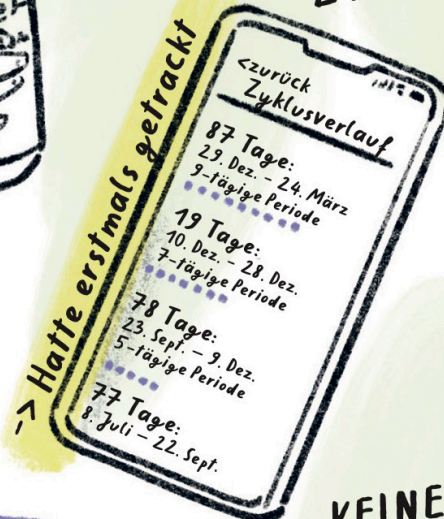 -> Hatte erstmals getrackt
<zurück
Zyklusverlauf
87 Tage:
29. Dez. – 24. März
9-tägige Periode
19 Tage:
10. Dez. – 28. Dez.
7-tägige Periode
78 Tage:
23. Sept. – 9. Dez.
5-tägige Periode
77 Tage:
8. Juli – 22. Sept.
KEINE